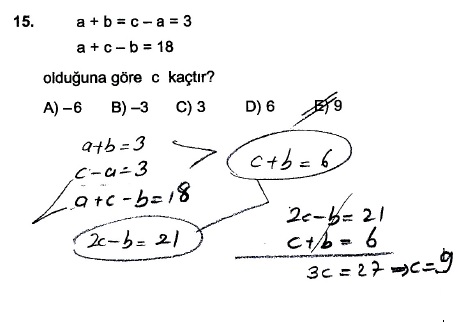 15. a + b = c – a = 3
a + c – b = 18
olduğuna göre c kaçtır?
A) –6 B) –3 C) 3 D) 6 E) 9
a+b=3
c-a=3
a+c-b=18
c+b=6
2c-b=21
2c-b=21
c+b=6
3c=27⇒c=9